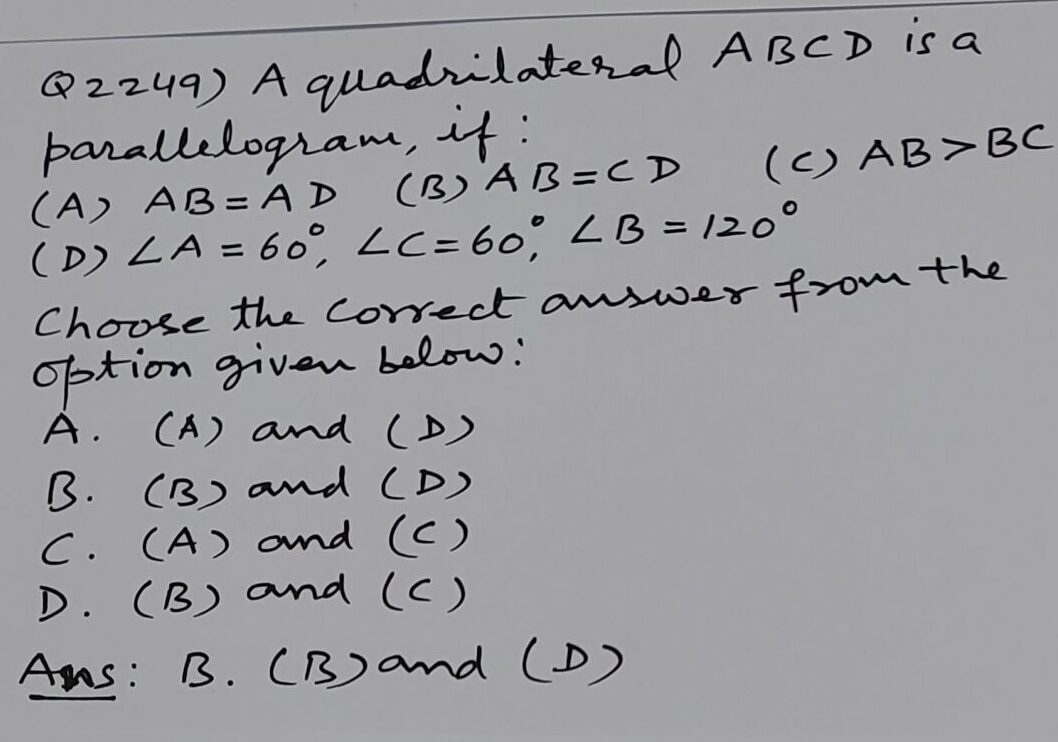 Q2249) A quadrilateral ABCD is a
parallelogram, if:
(A) AB=AD (B) AB=CD (C) AB>BC
(D) ∠A = 60°, ∠C=60°, ∠B = 120°
Choose the correct answer from the
option given below:
A. (A) and (D)
B. (B) and (D)
C. (A) and (C)
D. (B) and (C)
Ans: B. (B) and (D)